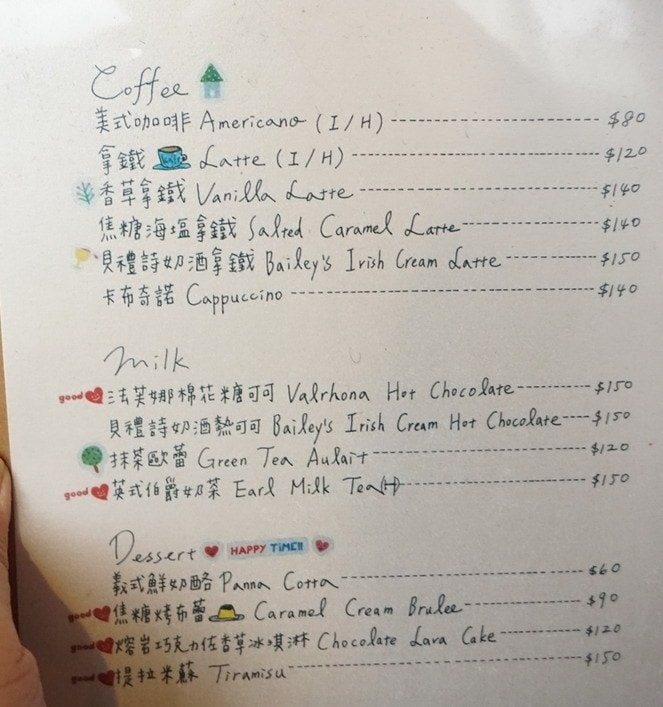 Coffee
美式咖啡 Americano (I/H) $80
拿鐵 Latte (I/H) $120
香草拿鐵 Vanilla Latte $140
焦糖海塩拿鐵 Salted Caramel Latte $140
貝禮詩奶酒拿鐵 Bailey's Irish Cream Latte $150
卡布奇諾 Cappuccino $140
Milk
good 法芙娜棉花糖可可 Valrhona Hot Chocolate $150
貝禮詩奶酒熱可可 Bailey's Irish Cream Hot Chocolate $150
抹茶歐蕾 Green Tea Aulait $120
good 英式伯爵奶茶 Earl Milk Tea(H) $150
Dessert HAPPY TiME!!
義式鮮奶酪 Panna Cotta $60
good 焦糖烤布蕾 Caramel Cream Brulee $90
good 熔岩巧克力佐香草冰淇淋 Chocolate Lava Cake $120
good 提拉米蘇 Tiramisu $150